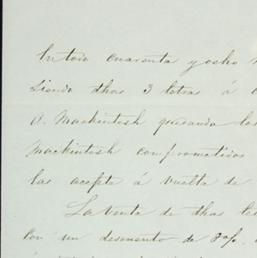 En todo cuarenta y ocho
siendo dhas 3 letras á
D. Mackintosh quedando los
Mackintosh comprometidos
las acepte á vuelta de
La venta de dhas
con un descuento de